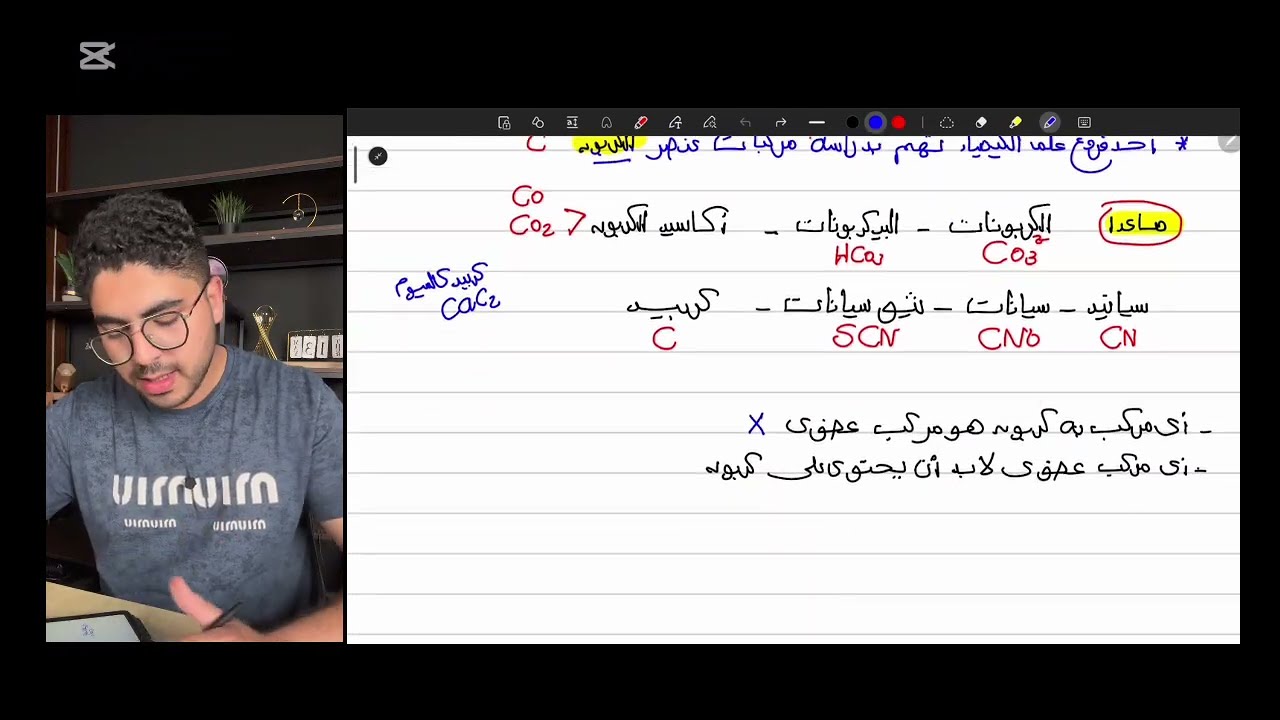 * احد فروع علم الكيمياء تهتم بدراسة مركبات عنصر الكربون C
ماعدا الكربونات - البيكربونات - أكاسيد الكربون > CO CO2
CO3 2- HCO3
سيانيد - سيانات - ثيوسيانات - كربيد كربيد كالسيوم CaC2
CN CNO SCN C
- أى مركب به كربون هو مركب عضوى X
- أى مركب عضوى لابد أن يحتوى على كربون